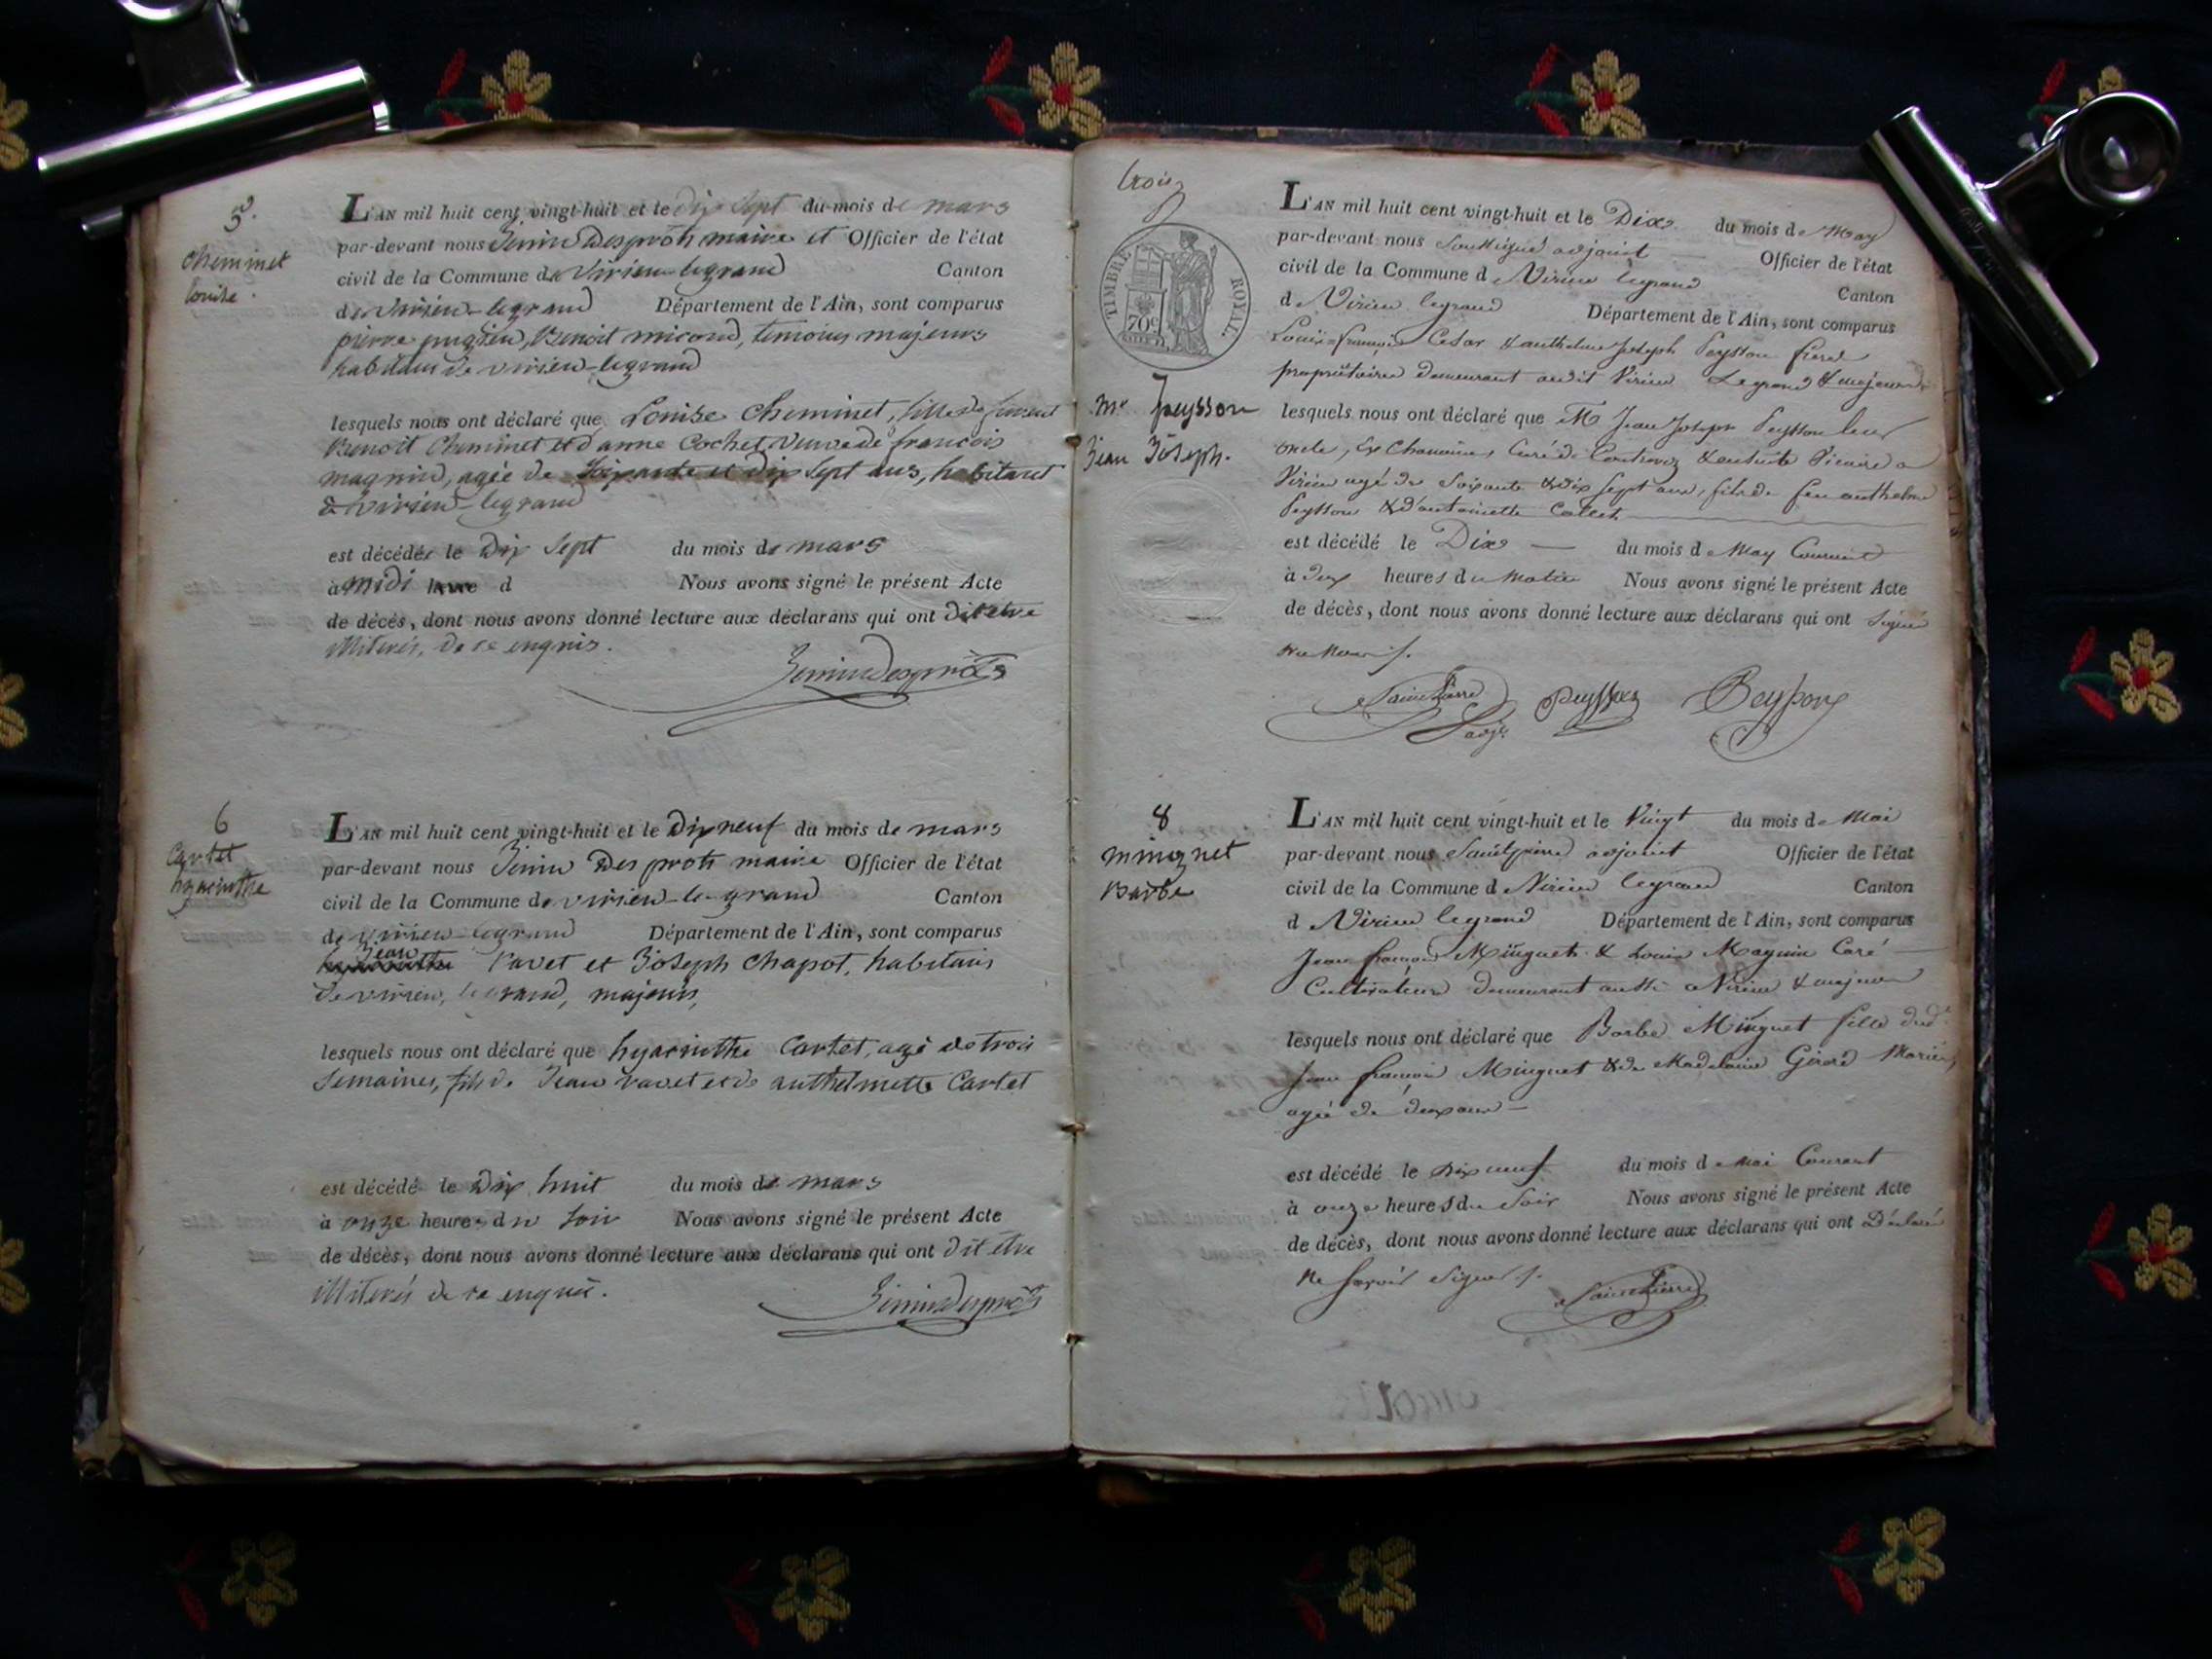 5.
Cheminet
Louise.
L'AN mil huit cent vingt-huit et le dix sept du mois de mars
par-devant nous Desprots maire et Officier de l'état
civil de la Commune de Virieu-legrand Canton
de Virieu-legrand Département de l'Ain, sont comparus
pierre pugieu, Benoit micoud, temoins majeurs
habitans de virieu-legrand
lesquels nous ont déclaré que Louise Cheminet, fille de
Benoit Cheminet et d'anne Cochet, veuve de francois
magnin, agée de Soixante et dix sept ans, habitant
à virieu-legrand
est décédée le Dix Sept du mois de mars
à midi heure d Nous avons signé le présent Acte
de décès, dont nous avons donné lecture aux déclarans qui ont dit etre
illiterés, de ce enquis.
6
Cartet
hyacinthe
L'AN mil huit cent vingt-huit et le Dix neuf du mois de mars
par-devant nous Des prots maire Officier de l'état
civil de la Commune de virieu-le-grand Canton
de virieu-legrand Département de l'Ain, sont comparus
Jean ravet et Joseph Chapot, habitans
de virieu, legrand, majeurs,
lesquels nous ont déclaré que hyacinthe Cartet, agé de trois
Semaines, fils de Jean ravet et de anthelmette Cartet
est décédé le Dix huit du mois de mars
à onze heures du Soir Nous avons signé le présent Acte
de décès, dont nous avons donné lecture aux déclarans qui ont dit etre
illiterés de ce enquis.
trois
TIMBRE ROYAL.
70c
Mr. peysson
Jean Joseph.
L'AN mil huit cent vingt-huit et le Dix du mois de May
par-devant nous Soussigné adjoint Officier de l'état
civil de la Commune d Virieu legrand Canton
d Virieu legrand Département de l'Ain, sont comparus
Louis-françois Cesar & anthelme Joseph Peysson freres
propriétaires demeurant audit Virieu Legrand & majeurs
lesquels nous ont déclaré que Mr Jean Joseph Peysson leur
oncle, Ex Chanoine, Curé de Contrevoz & ensuite Vicaire a
Virieu agé de Soixante & dix Sept ans, fils de feu anthelme
Peysson & d'antoinette Collet
est décédé le Dix du mois de May Courant
à deux heures du Matin Nous avons signé le présent Acte
de décès, dont nous avons donné lecture aux déclarans qui ont Signé
avec nous
Saint Pierre Peysson Peysson
adjt
8
minguet
Barbe
L'AN mil huit cent vingt-huit et le Vingt du mois de Mai
par-devant nous Saintpierre adjoint Officier de l'état
civil de la Commune d Virieu legrand Canton
d Virieu legrand Département de l'Ain, sont comparus
Jean françois Minguet & Louis Magnin Caré
Cultivateurs demeurant aussi a Virieu & majeurs
lesquels nous ont déclaré que Barbe Minguet fille dud
Jean françois Minguet & de Madelaine Girard Mariés,
agée de deux ans
est décédé le dix neuf du mois de Mai Courant
à onze heures du Soir Nous avons signé le présent Acte
de décès, dont nous avons donné lecture aux déclarans qui ont Déclaré
ne Savoir Signer
Saint Pierre